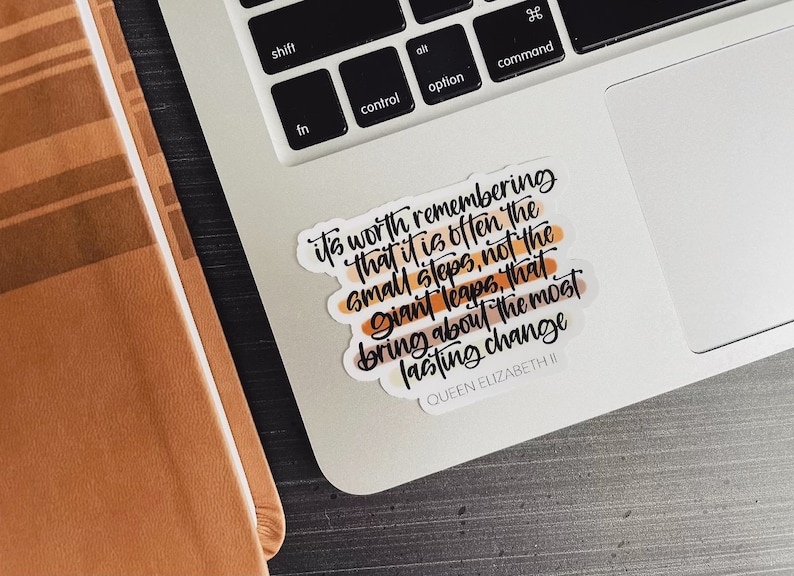 shift
fn
control
alt
option
⌘
command
it's worth remembering
that it is often the
small steps, not the
giant leaps, that
bring about the most
lasting change
QUEEN ELIZABETH II